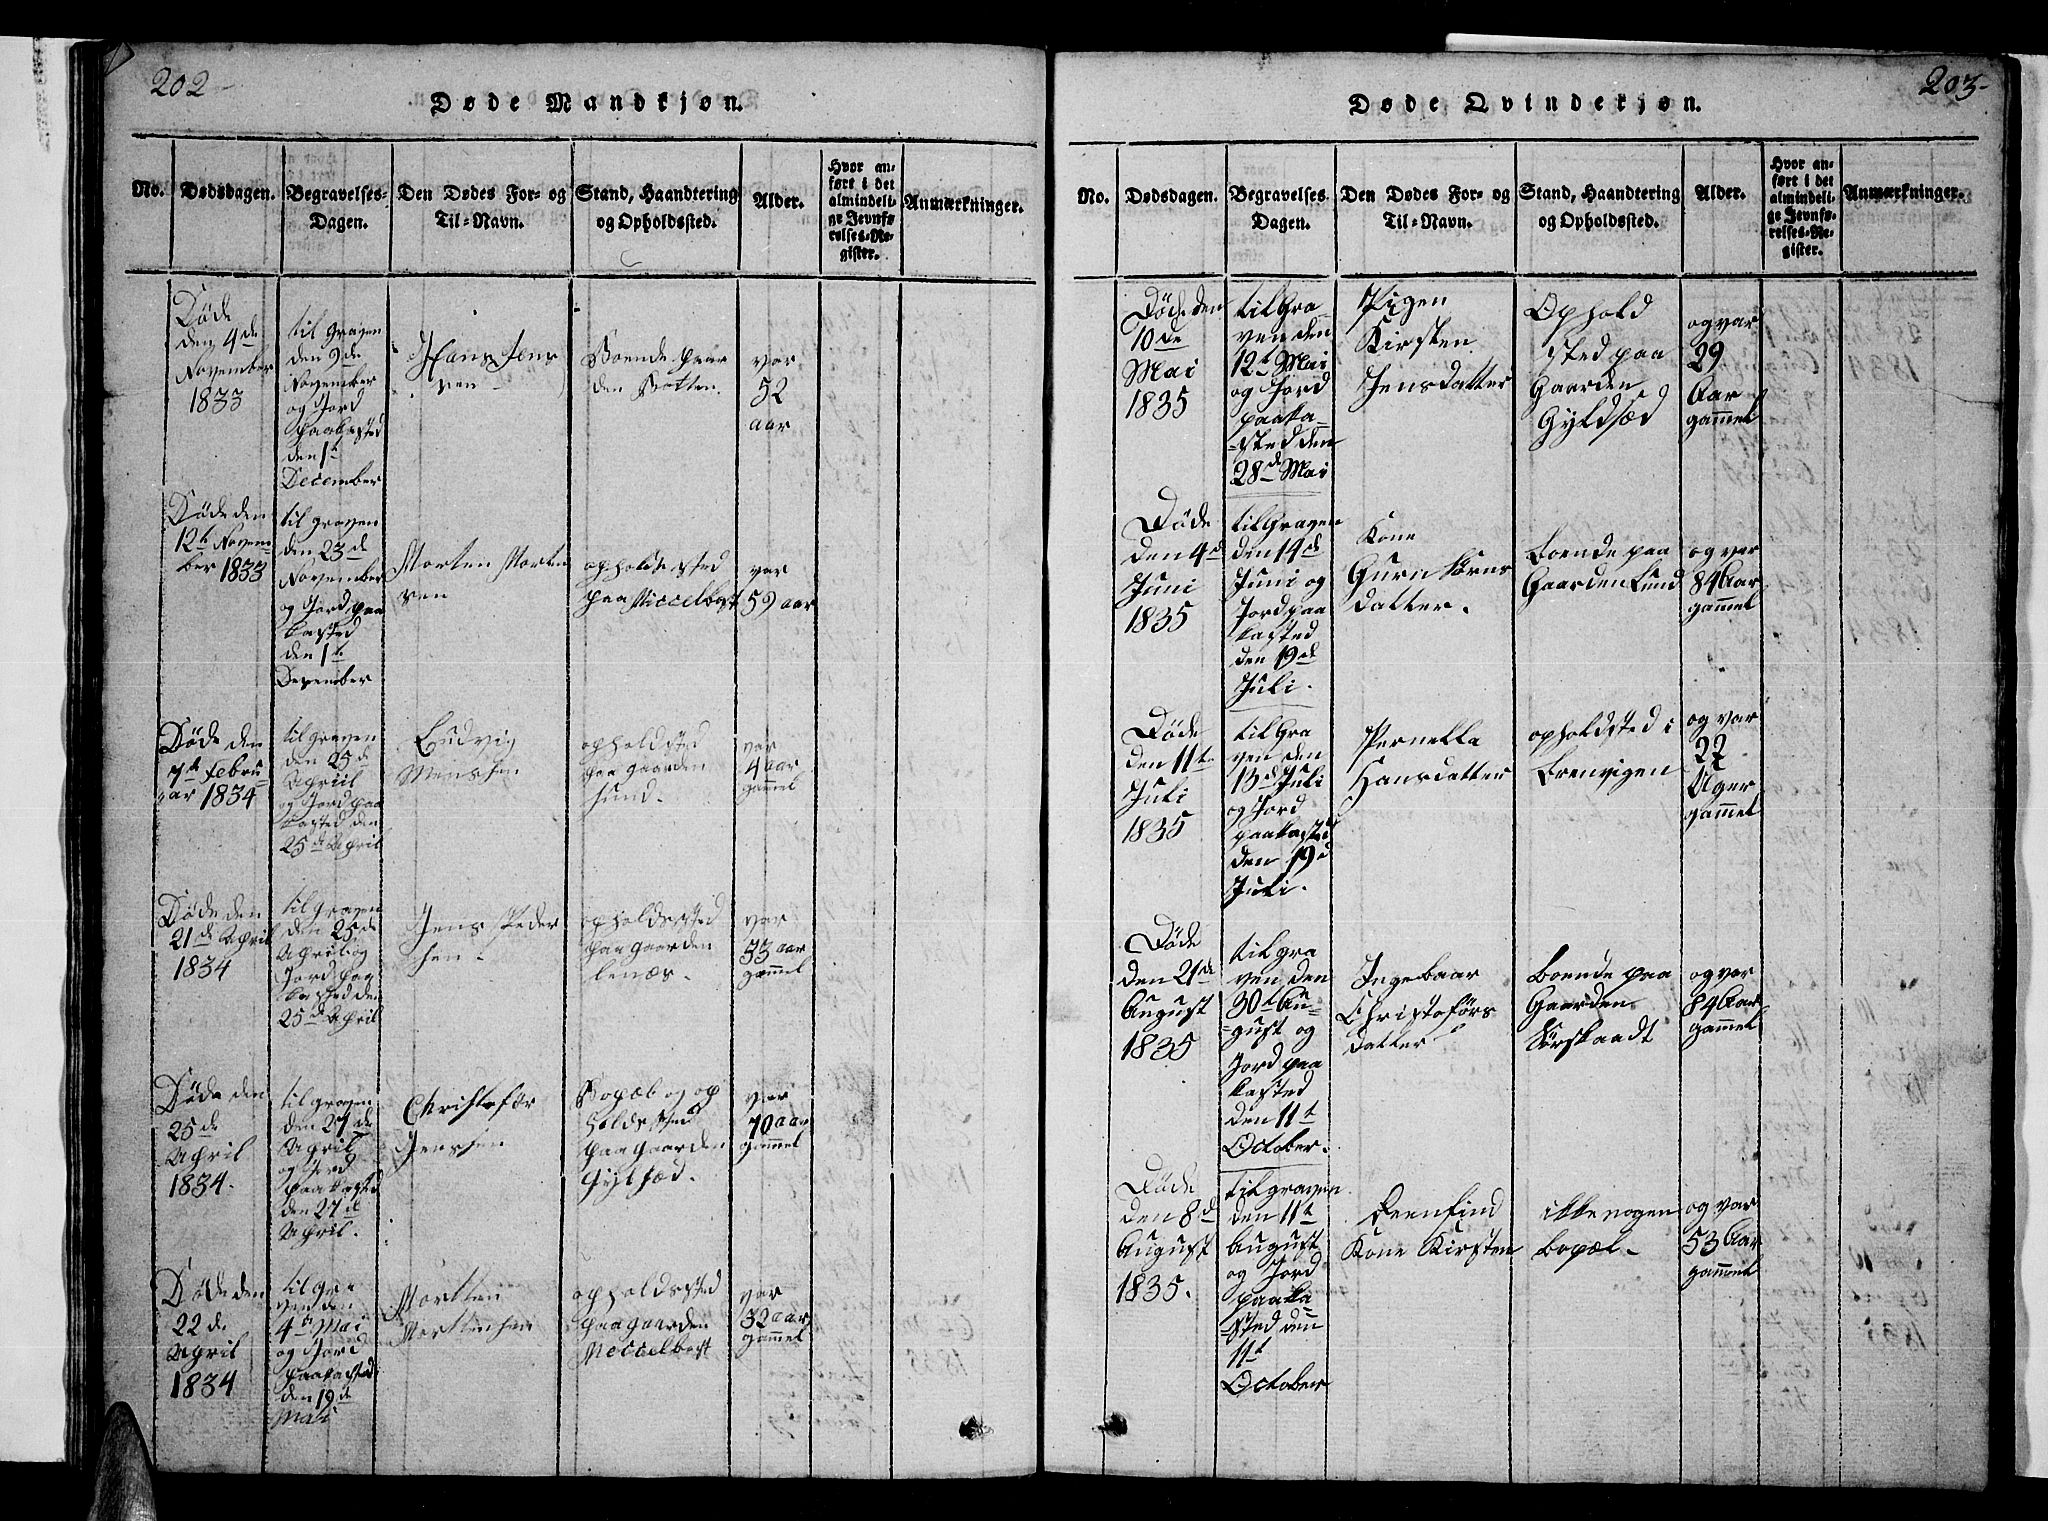 202
Døde Mandkjøn.
No. Dødsdagen. Begravelses-Dagen. Den Dødes For- og Til-Navn. Stand, Haandtering og Opholdssted. Alder. Hvor anført i det almindelige Jevnførelses-Register. Anmærkninger.
Døde
den 4de
November
1833
til graven
den 9de
November
og Jord
paakasted
den 1te
December
Hans Jens
sen
Boende paa
den Botten
var
52
aar
Døde den
12te Novem
ber 1833
til graven
den 23de
November
og Jord paa
kasted
den 1te
Desember
Morten Morten
sen
opholdssted
paa Miccelbost
var
59 aar
Døde den
7de Febru
ar 1834
til graven
den 25de
April
og Jord paa
kasted den
25de April
Ludvig
opholdsted
paa gaarden
Lund.
var
4 aar
gammel
Døde den
21de April
1834
til graven
den 25de
April og
Jord paa
kasted den
25de April
Jens Peder
sen
opholdssted
paa gaarden
lenæs.
var
33 aar
gammel
Døde den
25de
April
1834.
til graven
den 27de
April
og Jord
paakasted
den 27de
April.
Christofør
Jenssen
Bopæl og op
holdssted
paa gaarden
Gyltsæd.
var
70 aar
gammel
Døde den
22de
April
1834
til gra
ven den
4de Mai
og Jord
paakasted
den 19de
Mai
Mortten
Mortensen
opholdssted
paa gaarden
Meccelbost
var
32 aar
gammel
203
Døde Qvindekjøn.
No. Dødsdagen. Begravelses Dagen. Den Dødes For- og Til-Navn. Stand, Haandtering og Opholdssted. Alder. Hvor anført i det almindelige Jevnførelses-Register. Anmærkninger.
Døde den
10de
Mai
1835
til Gra
ven den
12t Mai
og Jord
paaka
sted den
28de Mai
Pigen
Kirsten
Jensdatter
Ophold
sted paa
Gaarden
Gyldsæd
og var
29
Aar
gammel
Døde
den 4d
Juni
1835
til Graven
den 14de
Juni og
Jord paa
kasted
den 19de
Juli.
Kone
Gurn
datter.
Boende paa
Gaarden Lund
og var
84 Aar
gammel
Døde
den 11te
Juli
1835
til Gra
ven den
13d Juli
og Jord
paakasted
den 19d
Juli.
Pernella
Hansdatter
opholdsted i
Brenvigen
og var
22
Uger
gammel
Døde
den 21de
August
1835
til gra
ven den
30te Au
gust og
Jord paa
kasted
den 11t
October.
Ingebaar
Christoførs
datter
Boende paa
Gaarden
Sørskaadt
og var
84 Aar
gammel
Døde
den 8d
August
1835.
til graven
den 11t
August
og Jord
paaka
sted den
11t
October
Kone Kirsten
ikke nogen
bopæl
og var
53 Aar
gammel